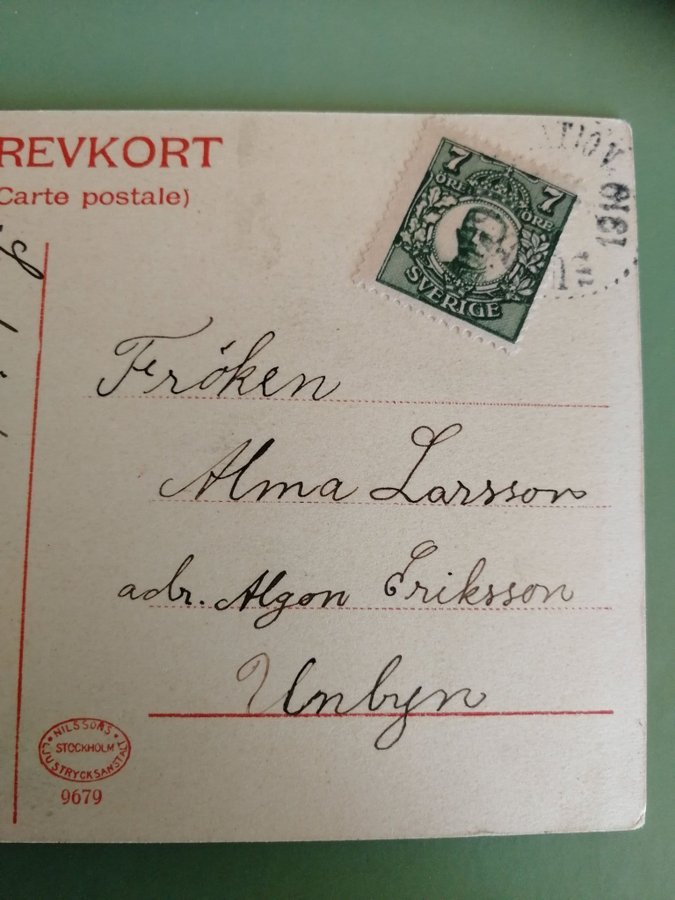 REVKORT
(Carte postale)
7 7
ÖRE ÖRE
SVERIGE
1919
Fröken
Alma Larsson
adr. Algon Eriksson
Unbyn
NILSSONS
STOCKHOLM
LJUSTRYCKSANSTALT
9679